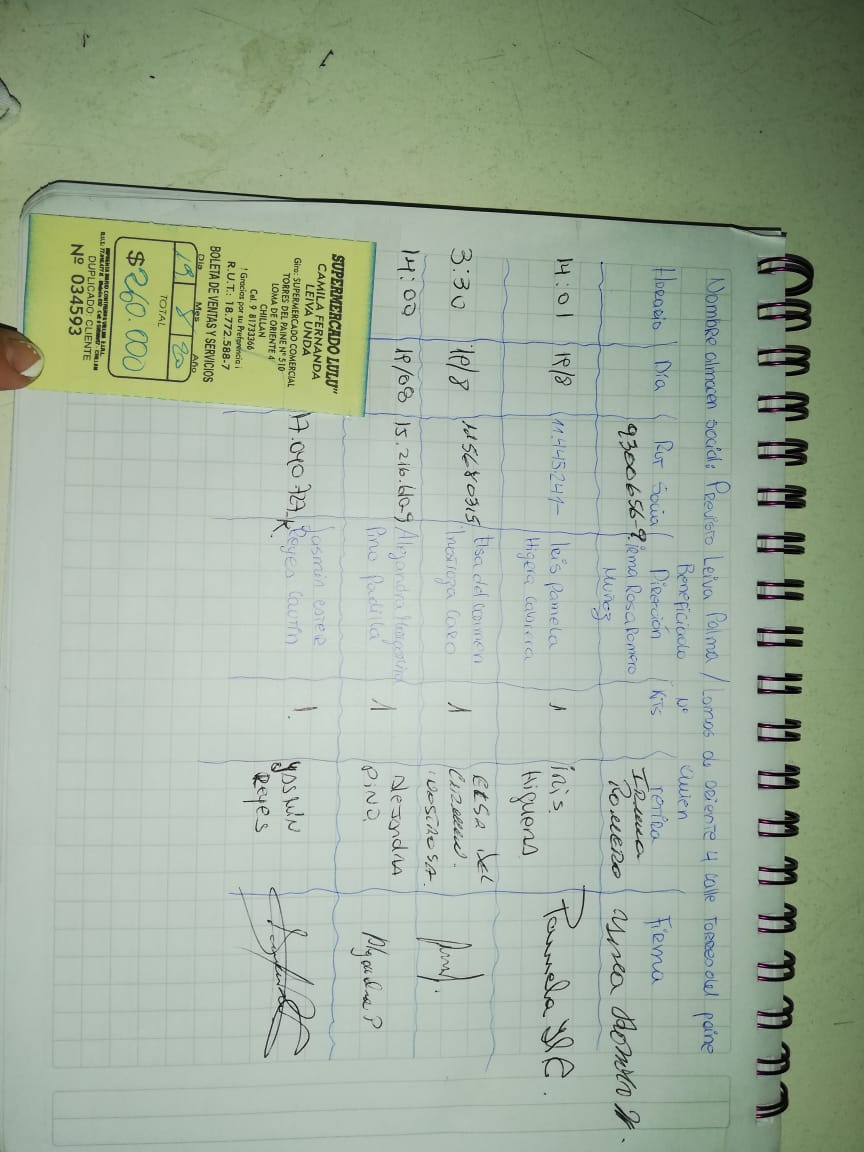 Nombre almacen social: Previsto Leiva Palma / Lomas de oriente 4 calle Torres del paine
Horario Día Rut Socia/ Beneficiado Dirección Nº Kits Quien retira Firma
9300656-9 Irma Rosa Romero Muñoz Irma Romero
14:01 19/8 11.445.241- Iris Pamela Higera Cabrera 1 Iris Higuera Pamela
3:30 19/8 Elsa del Carmen Inostroza Caro 1 Elsa del Carmen Inostrosa.
14:00 19/08 15.216.610-9 Alejandra Margarita Pino Padilla 1 Alejandra Pino Alejandra P
17.040.727-K. Yasmin ester Reyes Cautin 1. Yasmin Reyes
"SUPERMERCADO LULU"
CAMILA FERNANDA
LEIVA UNDA
Giro: SUPERMERCADO COMERCIAL
TORRES DEL PAINE Nº 510
LOMA DE ORIENTE 4
CHILLAN
Cel. 9 81733366
! Gracias por su Preferencia !
R.U.T.: 18.772.588-7
BOLETA DE VENTAS Y SERVICIOS
Día Mes Año
19 8 20
TOTAL
$260.000
DUPLICADO: CLIENTE
Nº 034593